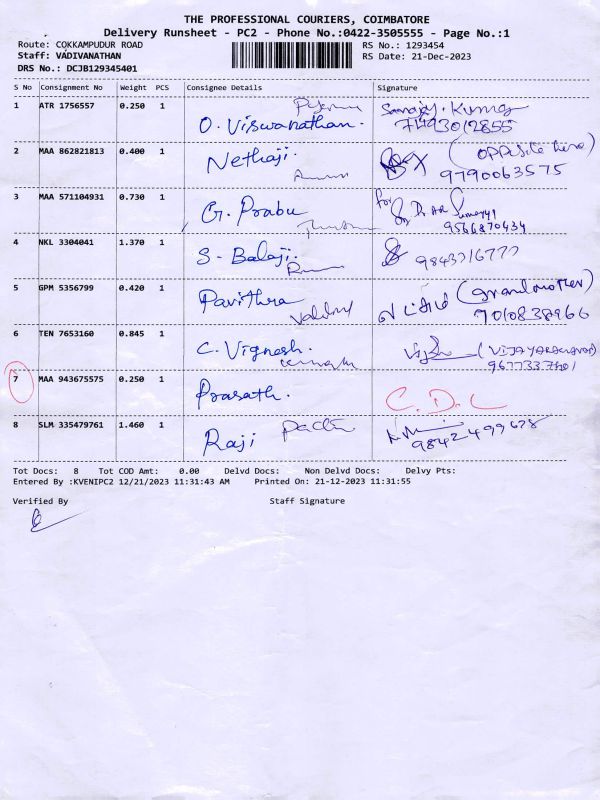 THE PROFESSIONAL COURIERS, COIMBATORE
Delivery Runsheet - PC2 - Phone No.:0422-3505555 - Page No.:1
Route: COKKAMPUDUR ROAD RS No.: 1293454
Staff: VADIVANATHAN RS Date: 21-Dec-2023
DRS No.: DCJB129345401
S No Consignment No Weight PCS Consignee Details Signature
1 ATR 1756557 0.250 1 O. Viswanathan. Sanajay. Kumar
2 MAA 862821813 0.400 1 Nethaji. (Opposite here)
9790063575
3 MAA 571104931 0.730 1 G. Prabu for
9566870434
4 NKL 3304041 1.370 1 S. Balaji.
5 GPM 5356799 0.420 1 Pavithra (Grandmother)
7010838966
6 TEN 7653160 0.845 1 C. Vignesh.
7 MAA 943675575 0.250 1 Prasath. C. D. L
8 SLM 335479761 1.460 1 Raji
9842499678
Tot Docs: 8 Tot COD Amt: 0.00 Delvd Docs: Non Delvd Docs: Delvy Pts:
Entered By :KVENIPC2 12/21/2023 11:31:43 AM Printed On: 21-12-2023 11:31:55
Verified By Staff Signature